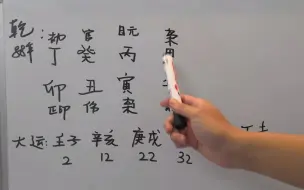 乾: 劫 官 日元 枭
丁 癸 丙
卯 丑 寅
正印 伤 枭
大运: 壬子 辛亥 庚戌
2 12 22 32